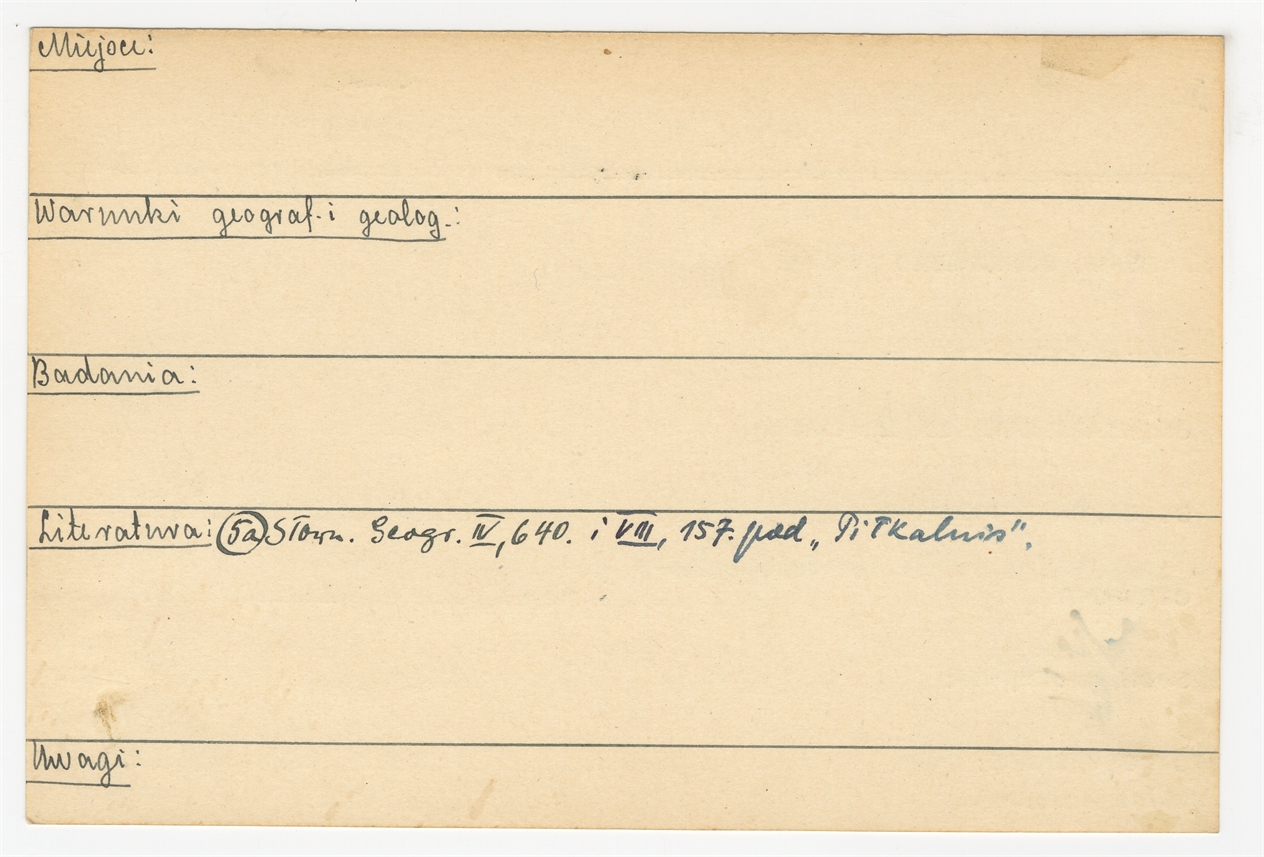 Miejsce:
Warunki geograf. i geolog.:
Badania:
Literatura: 5a Słown. Geogr. IV, 640. i VIII, 157. pod „Piłkalnis".
Uwagi: